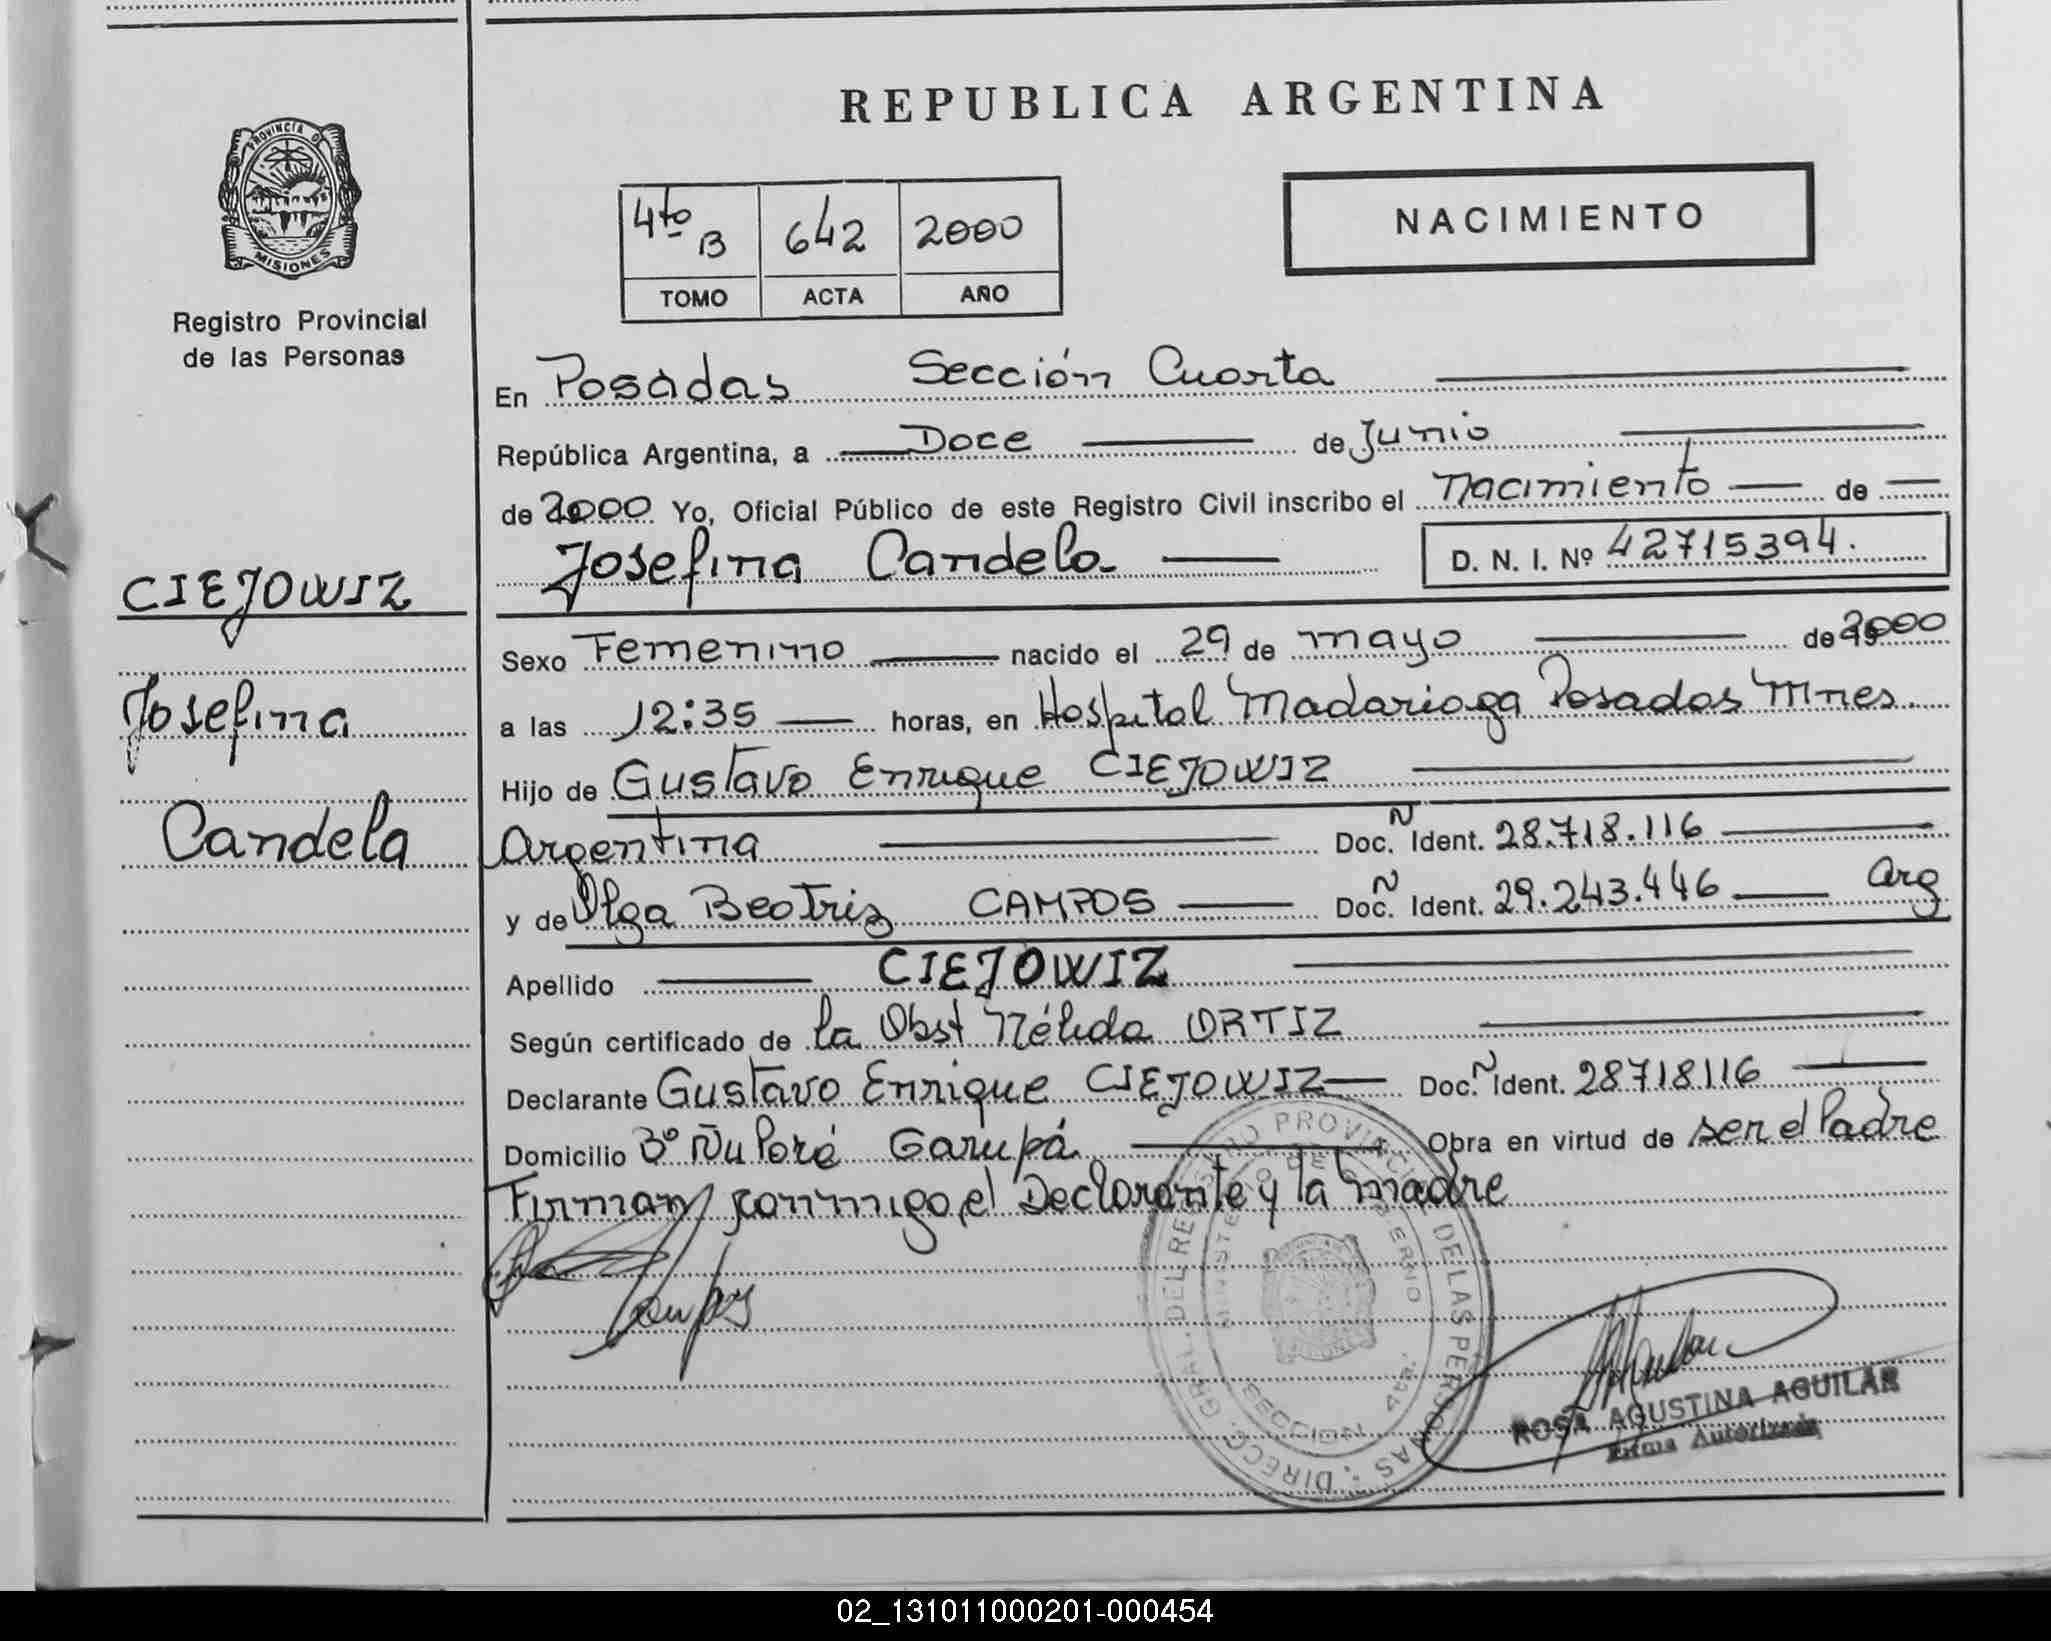 REPUBLICA ARGENTINA
PROVINCIA D
MISIONES
Registro Provincial
de las Personas
4to B 642 2000
TOMO ACTA AÑO
NACIMIENTO
En Posadas Sección Cuarta
República Argentina, a Doce de Junio
de 2000 Yo, Oficial Público de este Registro Civil inscribo el nacimiento de
Josefina Candela D. N. I. Nº 42715394.
CIEJOWIZ
Josefina
Candela
Sexo Femenino nacido el 29 de mayo de 2000
a las 12:35 horas, en Hospital Madariaga Posadas Mnes.
Hijo de Gustavo Enrique CIEJOWIZ
Argentina Doc. N Ident. 28.718.116
y de Olga Beatriz CAMPOS Doc. N Ident. 29.243.446 Arg
Apellido CIEJOWIZ
Según certificado de la Obst Nélida ORTIZ
Declarante Gustavo Enrique CIEJOWIZ Doc. N Ident. 28718116
Domicilio Bº Ñu Porá Garupá Obra en virtud de ser el Padre
Firman conmigo, el Declarante y la madre
Campos
DIRECC. GRAL. DEL REGISTRO PROVINCIAL DE LAS PERSONAS
MINISTERIO DE GOBIERNO
SECCION 4ta.
ROSA AGUSTINA AGUILAR
Firma Autorizada
02_131011000201-000454